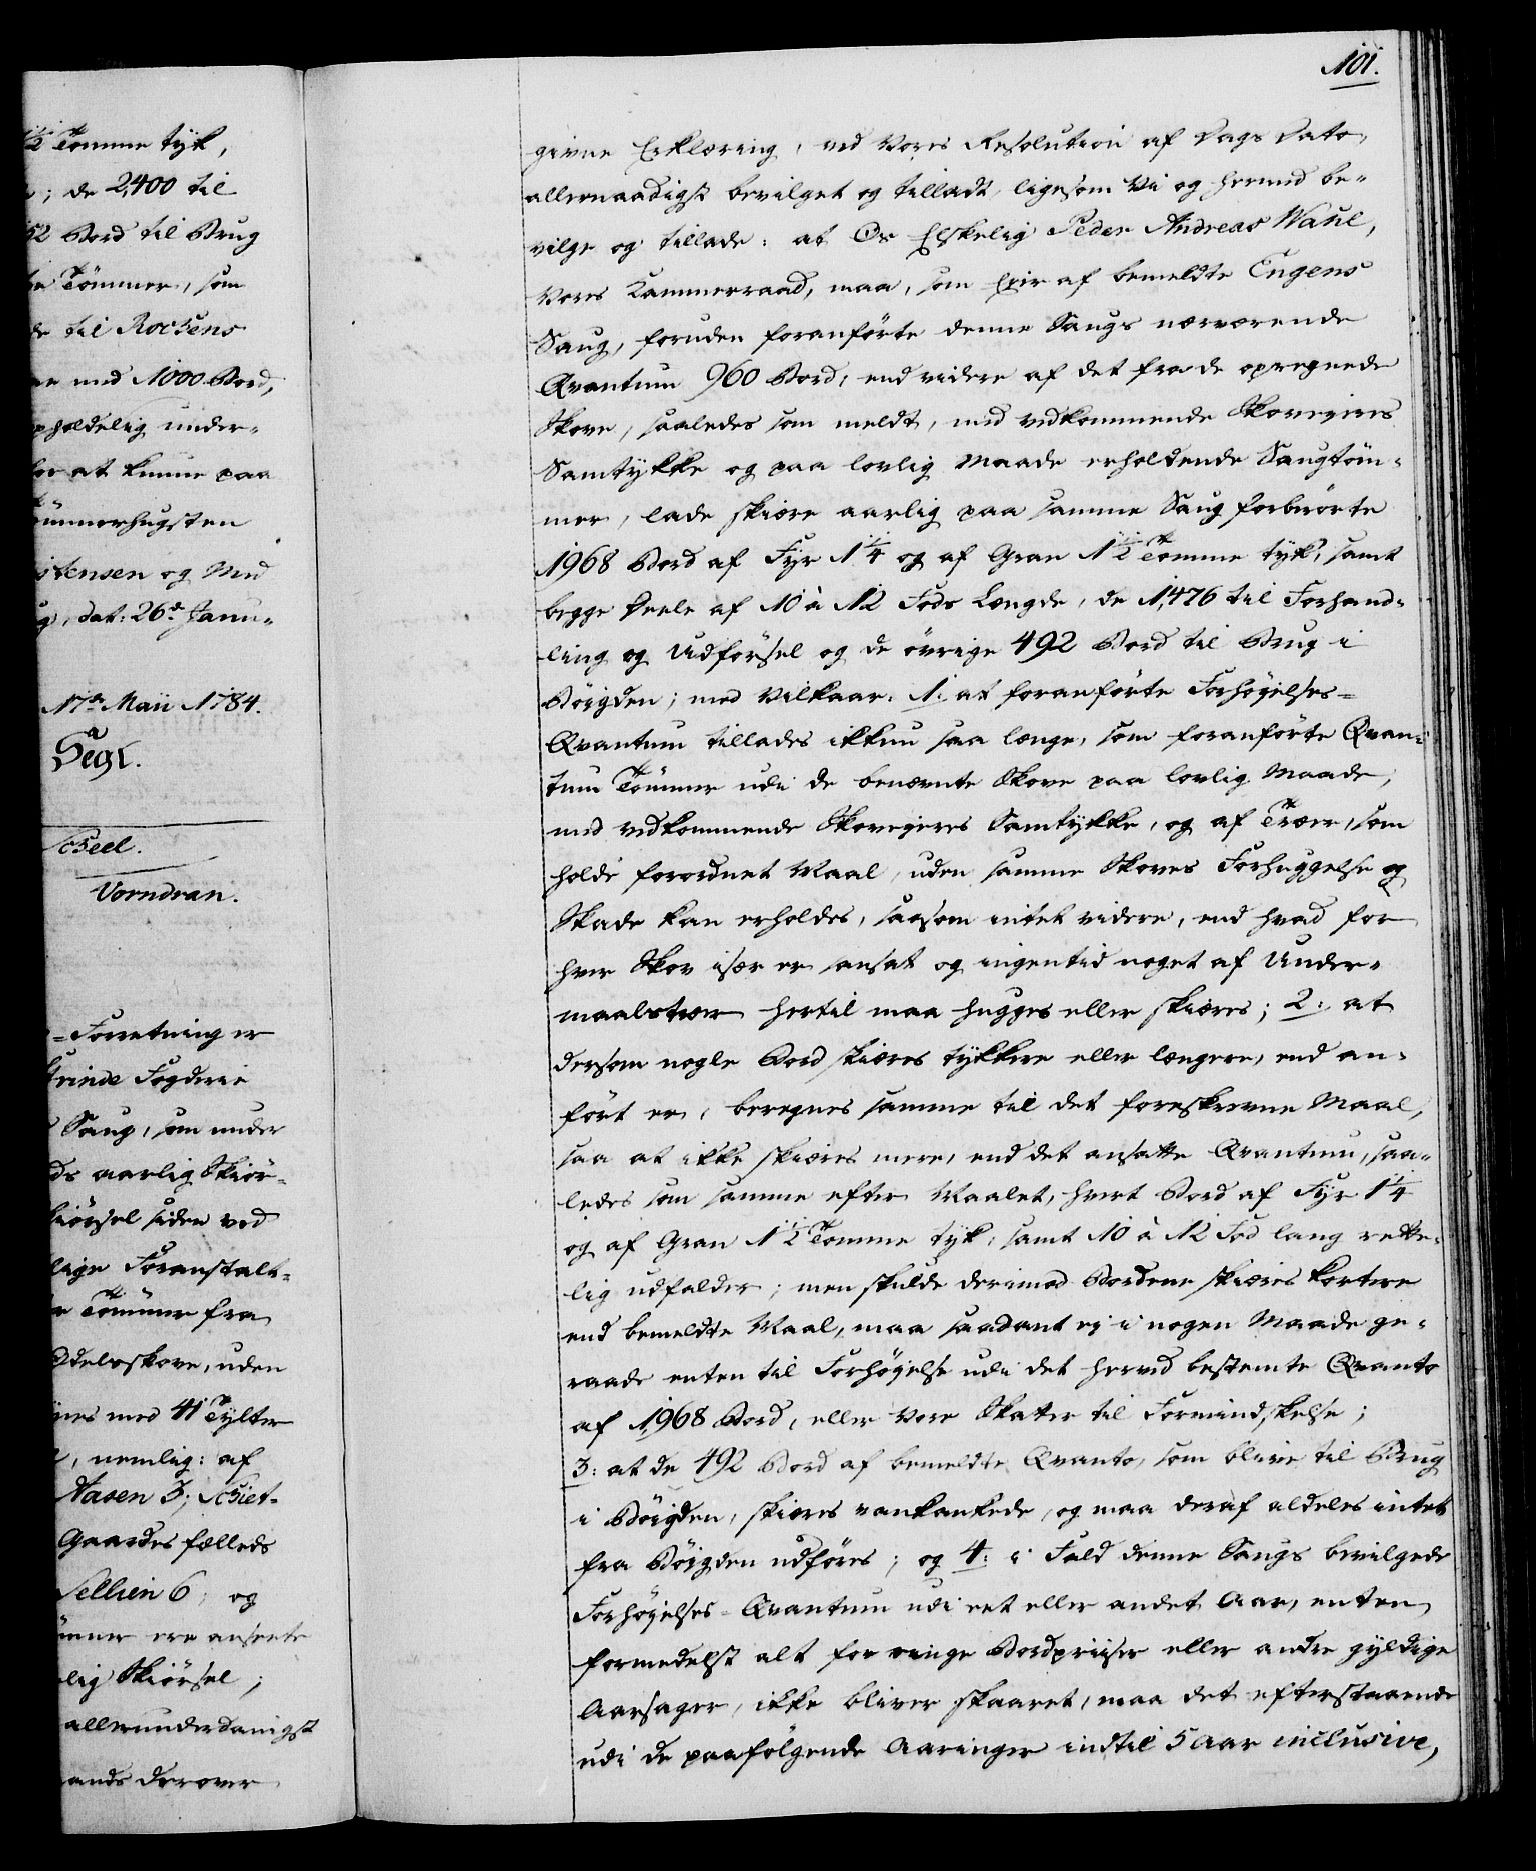 1/2 Tomme tyk,
; de 2,400 til
52 Bord til Brug
Tömmer, som
de til Rochens
med 1000 Bord,
pholdelig under-
for at kunne paa
ömmerhugsten
stensen og Med
dat: 26de Janu-
17de Maii 1784.
Segl.
Scheel.
Vorndran.
-Forretning er
Fogderie
Saug, som under
ds aarlig Skiör-
kiörsel siden ved
lige Foranstalt-
Tömmer fra
Odelsskove, uden
ynes med 41 Tylter
, nemlig: af
Aasen 3; Schiet-
Gaardes fælleds
Sellien 6; og
ömmer ere ansente
lig Skiörsel;
allerunderdanigst
ands derover
101.
givne Erklæring, ved Vores Resolution af Dags Dato,
allernaadigst bevilget og tilladt, ligesom Vi og herved be-
vilge og tillade: at Os Elskelig Peder Andreas Wahl,
Vores Kammerraad, maa, som Eier af bemeldte Engens
Saug, foruden foranförte denne Saugs nærværende
Qvantum 960 Bord, end videre af det fra de opregnede
Skove, saaledes som meldt, med vedkommende Skoveieres
Samtykke og paa lovlig Maade erholdende Saugtöm-
mer, lade skiære aarlig paa samme Saug forberörte
1968 Bord af Fyr 1 1/4 og af Gran 1 1/2 Tomme tyk, samt
begge Deele af 10 à 12 Fods Længde, de 1,476 til Forhand-
ling og Udförsel og de övrige 492 Bord til Brug i
Böigden; med Vilkaar: 1: at foranförte Forhöyelses-
Qvantum tillades ikkun saa længe, som foranförte Qvan-
tum Tömmer udi de benævnte Skove paa lovlig Maade,
med vedkommende Skoveieres Samtykke, og af Træer, som
holde forordnet Maal, uden samme Skoves Forhuggelse og
Skade kan erholdes, saasom intet videre, end hvad for
hver Skov især er ansat og ingentid noget af Under-
maalstræer hertil maa hugges eller skiæres; 2: at
dersom nogle Bord skiæres tykkere eller længere, end an-
fört er, beregnes samme til det foreskrevne Maal,
saa at ikke skiæres mere, end det ansatte Qvantum, saa-
ledes som samme efter Maalet, hvert Bord af Fyr 1 1/4
og af Gran 1 1/2 Tomme tyk, samt 10 à 12 Fod lang rette-
lig udfalder; men skulde derimod Bordene skiæres kortere
end bemeldte Maal, maa saadant ej i nogen Maade ge-
raade enten til Forhöyelse udi det herved bestemte Qvanto
af 1968 Bord, eller Vore Skatter til Formindskelse;
3: at de 492 Bord af bemeldte Qvanto, som blive til Brug
i Böigden, skiæres vankantede, og maa deraf aldeles intet
fra Böigden udföres; og 4: i Fald denne Saugs bevilgede
Forhöyelses-Qvantum udi eet eller andet Aar, enten
formedelst alt for ringe Bordpriiser eller andre gyldige
Aarsager, ikke bliver skaaret, maa det efterstaaende
udi de paafölgende Aaringer indtil 5 Aar inclusive,